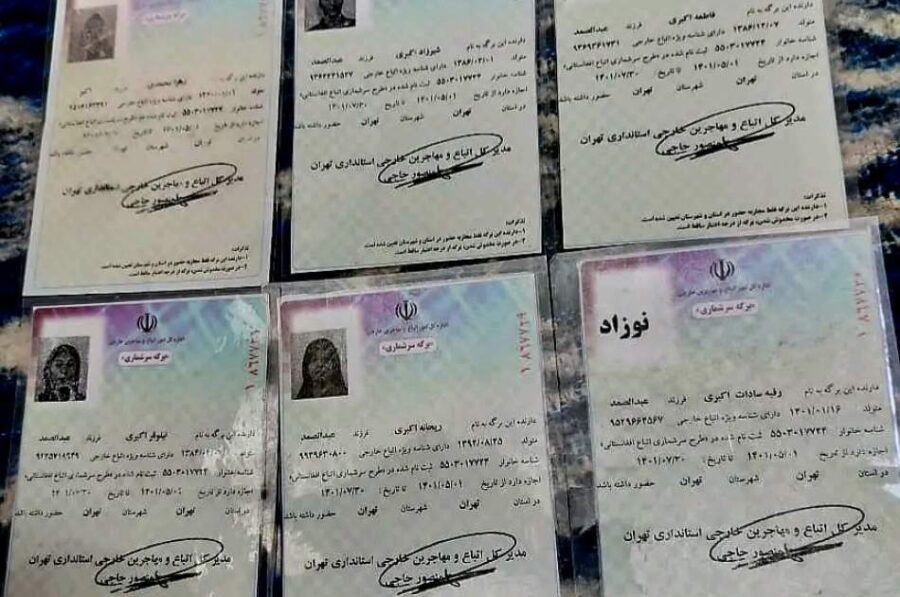 زهرا محمدی اکبر
متولد
شناسه خانوار ۵۵۰۳۰۱۷۷۲۴ ثبت نام شده در «طرح سرشماری اتباع افغانستانی»
اجازه دارد از تاریخ ۱۴۰۱/۰۵/۰۱ تا تاریخ
در استان تهران شهرستان تهران حضور داشته باشد
مدیر کل اتباع و مهاجرین خارجی استانداری تهران
منصور حاجی
تذکرات:
۱-دارنده این برگه فقط مجازبه حضور در استان و شهرستان تعیین شده است.
۲- در صورت مخدوش شدن، برگه از درجه اعتبار ساقط است.
دارنده این برگه به نام شیرزاد اکبری فرزند عبدالصمد
متولد ۱۳۸۶/۰۲/۰۱ دارای شناسه ویژه اتباع خارجی
شناسه خانوار ۵۵۰۳۰۱۷۷۲۴ ثبت نام شده در «طرح سرشماری اتباع افغانستانی»
اجازه دارد از تاریخ ۱۴۰۱/۰۵/۰۱ تا تاریخ ۱۴۰۱/۰۷/۳۰
در استان تهران شهرستان تهران حضور داشته باشد
مدیر کل اتباع و مهاجرین خارجی استانداری تهران
منصور حاجی
تذکرات:
۱-دارنده این برگه فقط مجازبه حضور در استان و شهرستان تعیین شده است.
۲- در صورت مخدوش شدن، برگه از درجه اعتبار ساقط است.
دارنده این برگه به نام فاطمه اکبری فرزند عبدالصمد
متولد ۱۳۸۴/۱۲/۰۷ دارای شناسه ویژه اتباع خارجی ۹۳۶۹۳۶۱۷۳۱
شناسه خانوار ۵۵۰۳۰۱۷۷۲۴ ثبت نام شده در «طرح سرشماری اتباع افغانستانی»
اجازه دارد از تاریخ ۱۴۰۱/۰۵/۰۱ تا تاریخ ۱۴۰۱/۰۷/۳۰
در استان تهران شهرستان تهران حضور داشته باشد
مدیر کل اتباع و مهاجرین خارجی استانداری تهران
منصور حاجی
تذکرات:
۱-دارنده این برگه فقط مجازبه حضور در استان و شهرستان تعیین شده است.
۲- در صورت مخدوش شدن، برگه از درجه اعتبار ساقط است.
«برگه سرشماری»
دارنده این برگه به نام نیلوفر اکبری فرزند عبدالصمد
متولد دارای شناسه ویژه اتباع خارجی
شناسه خانوار ۵۵۰۳۰۱۷۷۲۴ ثبت نام شده در «طرح سرشماری اتباع افغانستانی»
اجازه دارد از تاریخ تا تاریخ ۱۴۰۱/۰۷/۳۰
در استان تهران شهرستان تهران حضور داشته باشد
مدیر کل اتباع و مهاجرین خارجی استانداری تهران
منصور حاجی
«برگه سرشماری»
۱۰۸۶۷۷۲۹
دارنده این برگه به نام ریحانه اکبری فرزند عبدالصمد
متولد ۱۳۹۲/۰۸/۲۵ دارای شناسه ویژه اتباع خارجی ۹۹۳۹۶۳۰۸۰۰
شناسه خانوار ۵۵۰۳۰۱۷۷۲۴ ثبت نام شده در «طرح سرشماری اتباع افغانستانی»
اجازه دارد از تاریخ ۱۴۰۱/۰۵/۰۱ تا تاریخ ۱۴۰۱/۰۷/۳۰
در استان تهران شهرستان تهران حضور داشته باشد
مدیر کل اتباع و مهاجرین خارجی استانداری تهران
منصور حاجی
«برگه سرشماری»
نوزاد
دارنده این برگه به نام رقیه سادات اکبری فرزند عبدالصمد
متولد ۱۴۰۱/۰۱/۱۶ دارای شناسه ویژه اتباع خارجی ۹۵۲۹۶۶۳۵۶۷
شناسه خانوار ۵۵۰۳۰۱۷۷۲۴ ثبت نام شده در «طرح سرشماری اتباع افغانستانی»
اجازه دارد از تاریخ ۱۴۰۱/۰۵/۰۱ تا تاریخ ۱۴۰۱/۰۷/۳۰
در استان تهران شهرستان تهران حضور داشته باشد
مدیر کل اتباع و مهاجرین خارجی استانداری تهران
منصور حاجی